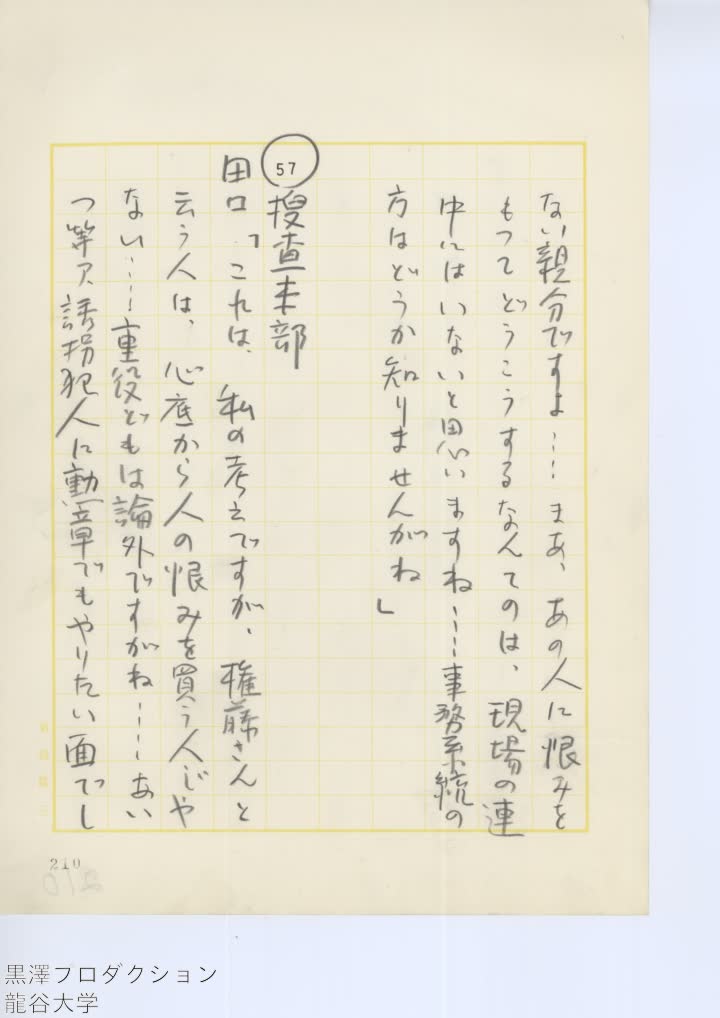 ない親分ですよ……まあ、あの人に恨みを
もつてどうこうするなんてのは、現場の連
中にはいないと思いますね……事務系統の
方はどうか知りませんがね」
57
捜査本部
田口「これは、私の考えですが、権藤さんと
云う人は、心底から人の恨みを買う人じや
ない……重役どもは論外ですがね……あい
つ等ア、誘拐犯人に勲章でもやりたい面でし
210
黒澤プロダクション
龍谷大学